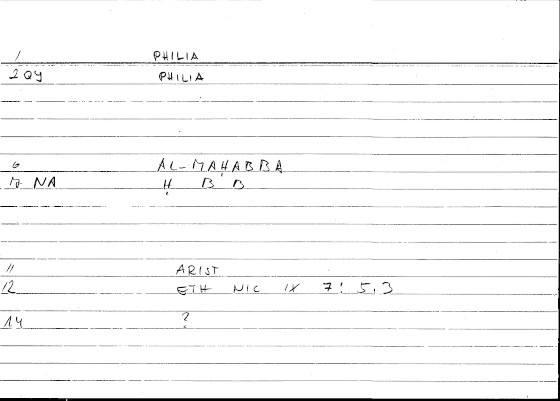 1 PHILIA
2 QY PHILIA
6 AL-MAḤABBA
7 NA Ḥ B B
11 ARIST
12 ETH NIC IX 7: 5,3
14 ?